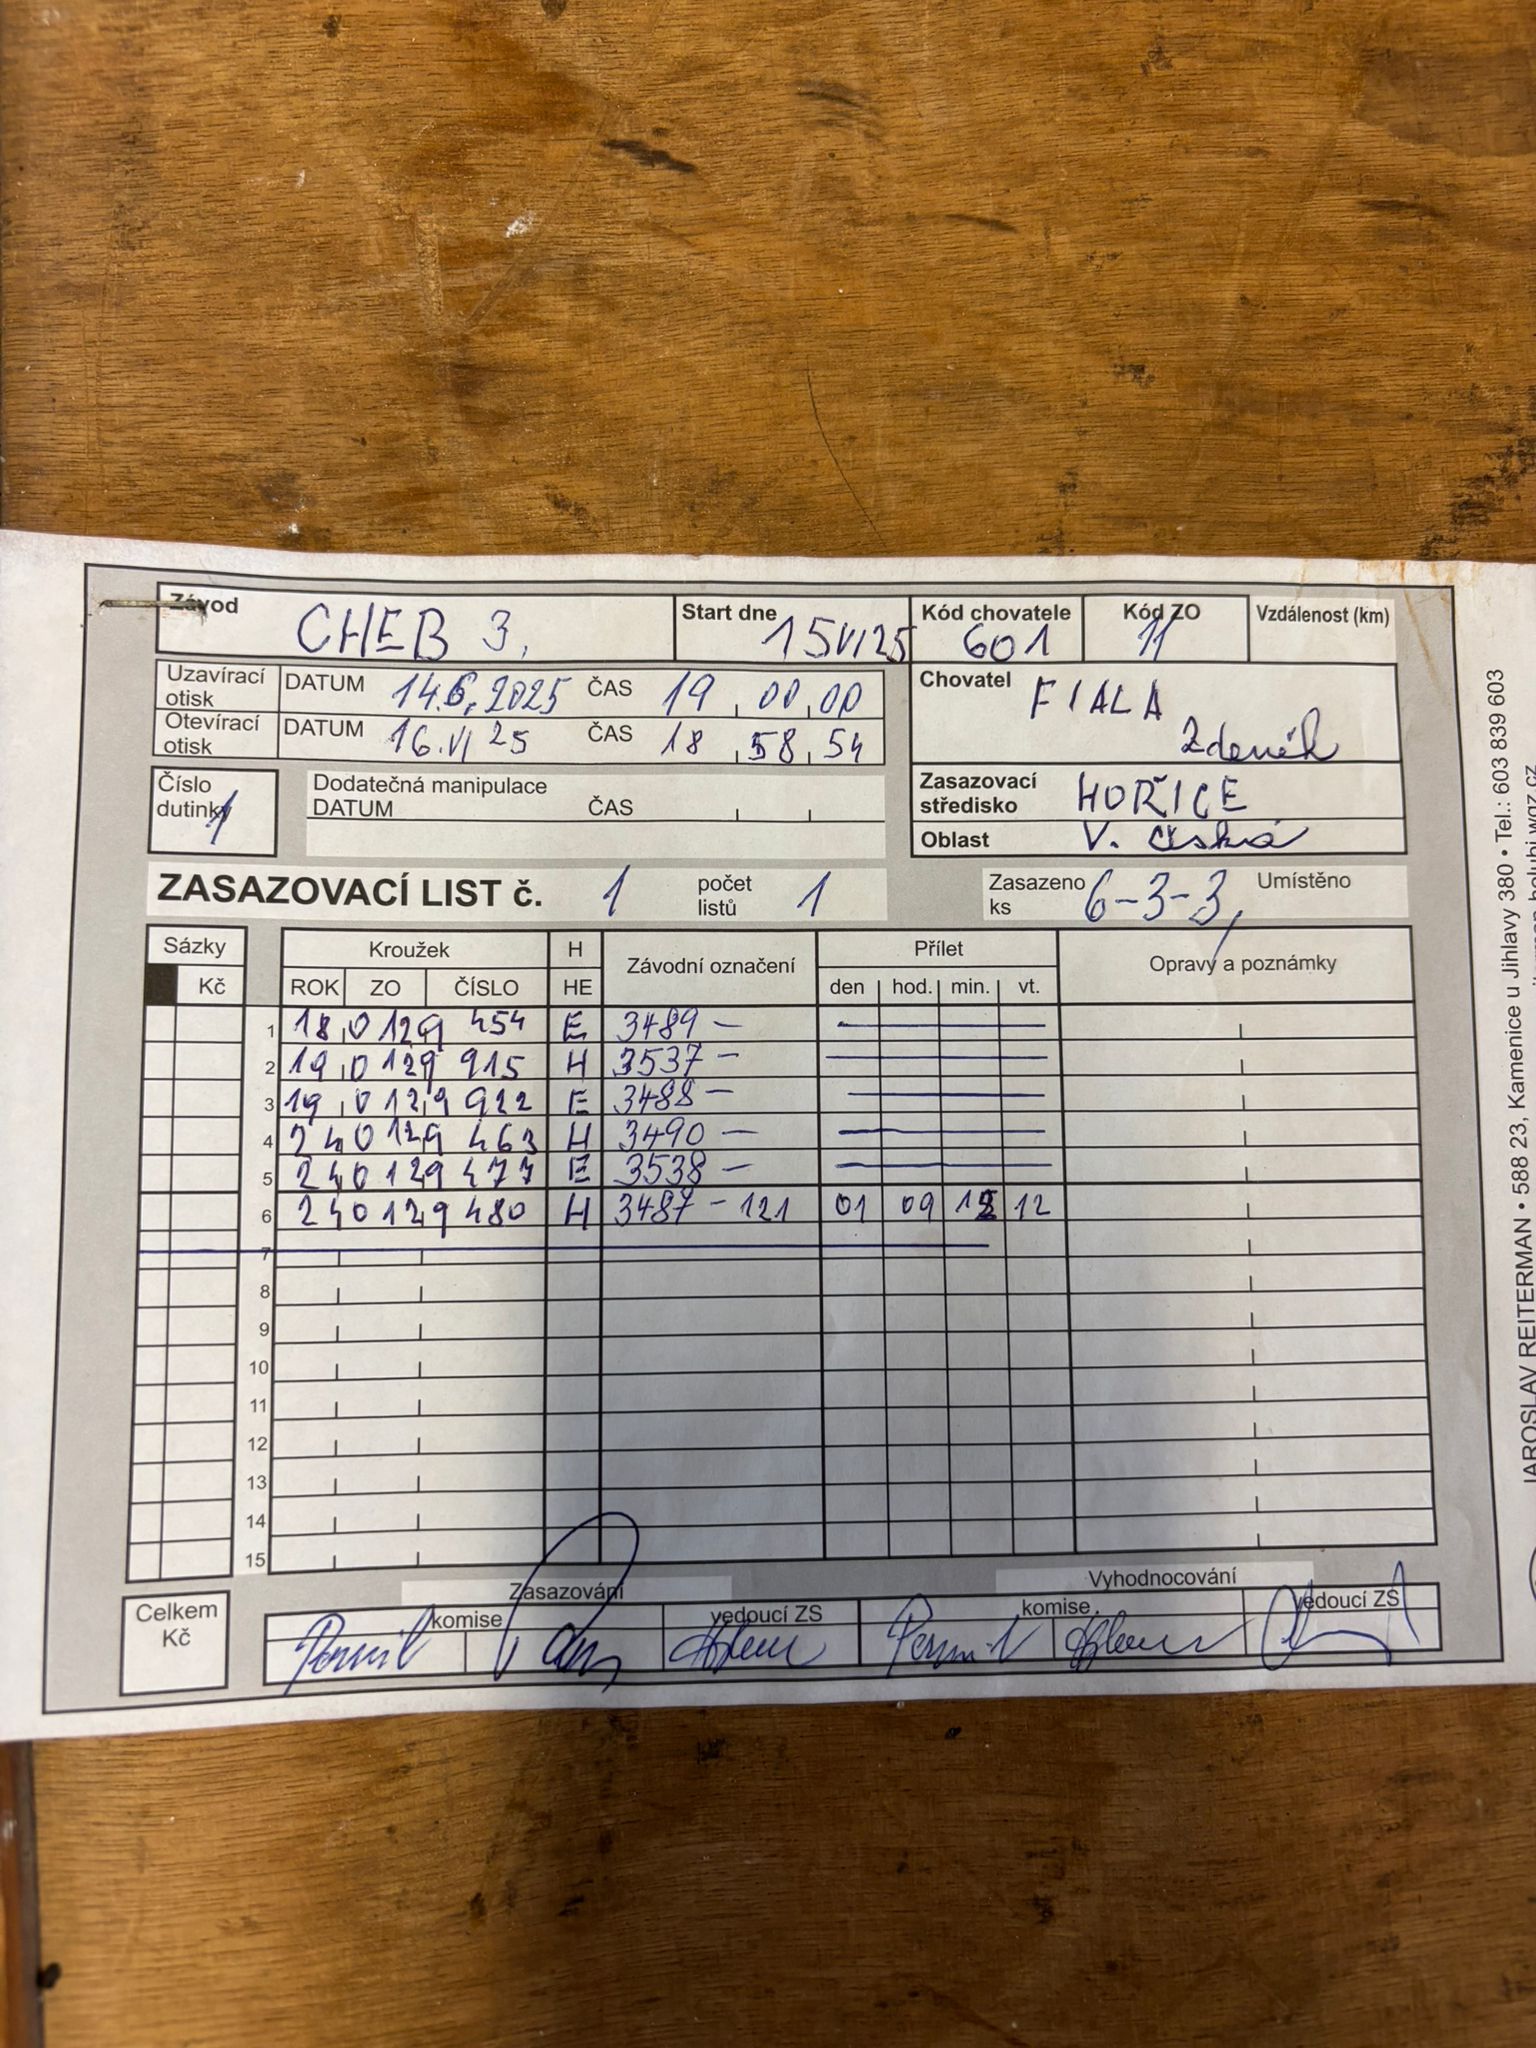 Závod CHEB 3, Start dne 15 VI 25 Kód chovatele 601 Kód ZO 11 Vzdálenost (km)
Uzavírací otisk DATUM 14.6, 2025 ČAS 19 , 00 , 00
Otevírací otisk DATUM 16.VI 25 ČAS 18 , 58 , 54
Chovatel FIALA
Zdeněk
Číslo dutinky 1 Dodatečná manipulace
DATUM ČAS
Zasazovací středisko HOŘICE
Oblast V. česká
ZASAZOVACÍ LIST č. 1 počet listů 1 Zasazeno ks 6-3-3, Umístěno
Sázky Kroužek H Závodní označení Přílet Opravy a poznámky
Kč ROK ZO ČÍSLO HE den hod. min. vt.
1 18 0129 454 E 3489 —
2 19 0129 915 H 3537 —
3 19 0129 922 E 3488 —
4 24 0129 463 H 3490 —
5 24 0129 477 E 3538 —
6 24 0129 480 H 3487 - 121 01 09 12
7
8
9
10
11
12
13
14
15
Zasazování Vyhodnocování
Celkem Kč komise vedoucí ZS komise vedoucí ZS
JAROSLAV REITERMAN • 588 23, Kamenice u Jihlavy 380 • Tel.: 603 839 603